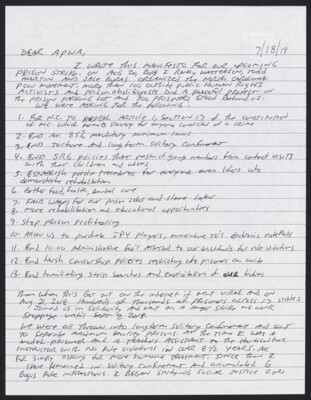 7/18/19
DEAR APWA,
I wrote this manifesto for our upcoming
PRISON STRIKE. ON AUG 20, 2018 I Randy Watterson, Todd
MARTIN AND Jace Buras ORGANIZED the NORTH CAROLINA
POW MOVEMENT. More than 100 outside public Human Rights
Activists and prison abolitionists did A peaceful protest in
the prison parking lot and 300 prisoners stood behind us.
We were ASKING for the following:
1. For N.C. to repeal Article 1 Section 17 of the constitution
of N.C. which permits slavery for anyone convicted of a crime
2. END All 85% mandatory minimum laws
3. END TORTURE and long term solitary confinement
4. END SRG policies that restrict gang members from contact visits
with their children and wives
5. ESTABLISH parole procedures for everyone even lifers who
demonstrate rehabilitation
6. Better food, health, dental care
7. FAIR WAGES for our prison jobs and slave labor
8. More rehabilitation and educational opportunities
9. Stop prison profiteering
10. Allow us to purchase JPY players, MP3s electronic tablets
11. End 10.00 Administrative fee's Attached to our hardships for rule violations
12. End harsh censorship policies restricting who prisoners can write
13. End humiliating strip searches and exploitation of our bodies
Then when this got out on the internet it went viral and on
Aug 21, 2018 Hundreds of thousands of prisoners across 17 states
joined us in solidarity and went on a major strike and work
stoppage until Sept 9, 2018.
We were all thrown into long term solitary confinement and sent
to separate maximum security prisons. At the time I was a
model prisoner and a teachers Assistant to the Horticulture
instructor with no rule violations in over 8½ years. All
for simply asking for more humane treatment. Since then I
have remained in solitary confinement and accumulated 6
bogus rule infractions. I began studying social justice and